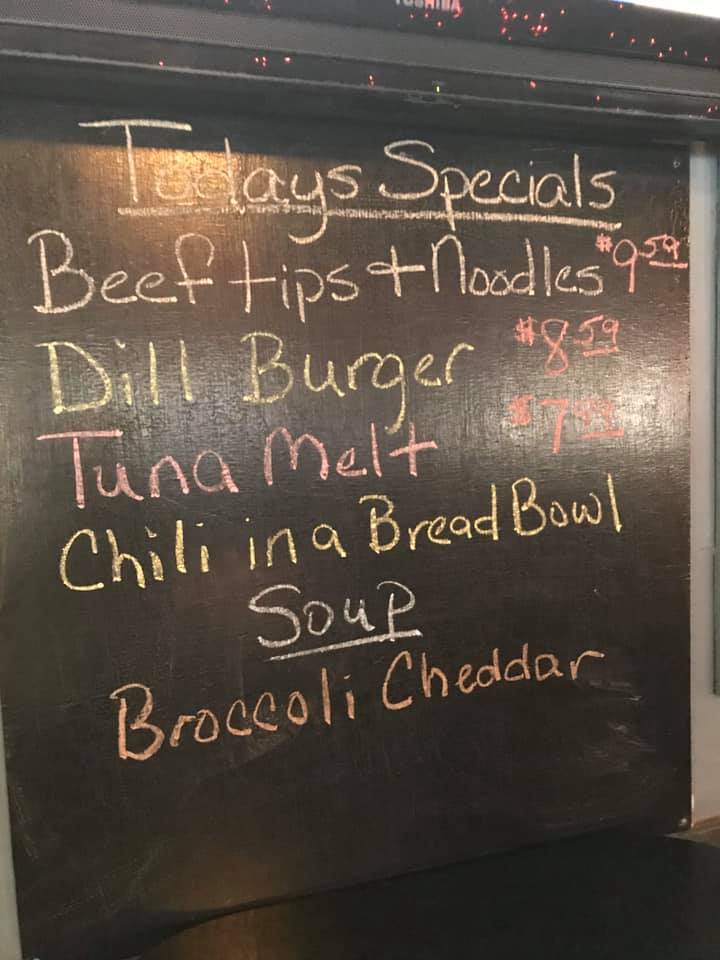 TOSHIBA
Todays Specials
Beef tips + Noodles $9.59
Dill Burger $8.59
Tuna Melt $7.99
Chili in a Bread Bowl
Soup
Broccoli Cheddar